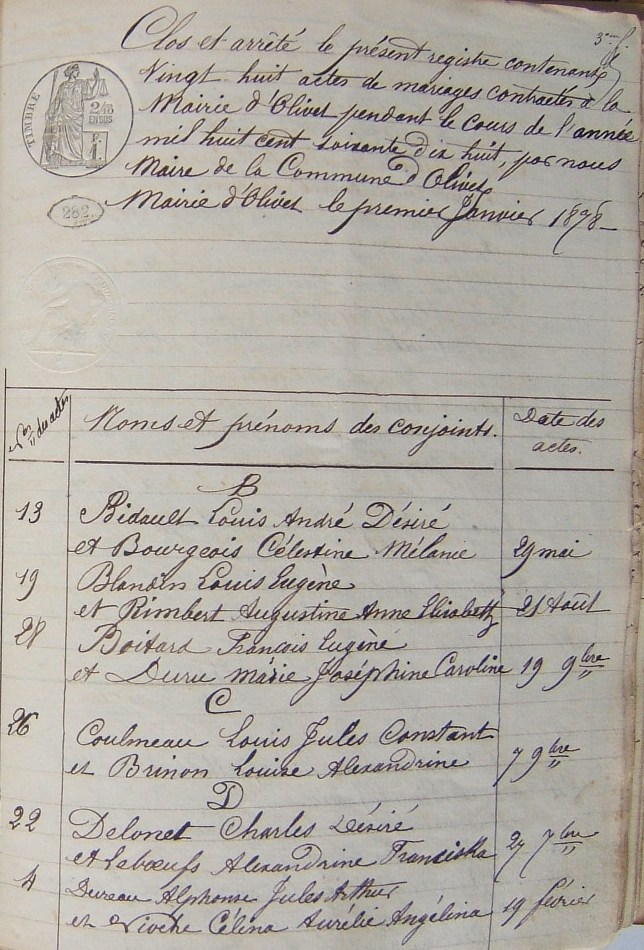 3me f.
Clos et arrêté le présent registre contenant
Vingt huit actes de mariages contractés à la
Mairie d'Olivet pendant le cours de l'année
mil huit cent soixante dix huit, par nous
Maire de la Commune d'Olivet,
Mairie d'Olivet le premier Janvier 1878
TIMBRE
2/10
EN SUS
F.
1.
282
Nos des actes
Noms et prénoms des conjoints.
Date des
actes.
B
13 Bidault Louis André Désiré
et Bourgeois Célestine Mélanie 29 mai
19 Blandin Louis Eugène
et Rimbert Augustine Anne Elisabeth 21 Août
28 Boitard François Eugène
et Duru Marie Joséphine Caroline 19 9bre
C
26 Coulmeau Louis Jules Constant
et Brinon Louise Alexandrine 7 9bre
D
22 Delonet Charles Désiré
et Leboeufs Alexandrine Franciska 27 7bre
4 Dureau Alphonse Jules Arthur
et Célina Aurelie Angélina 19 février